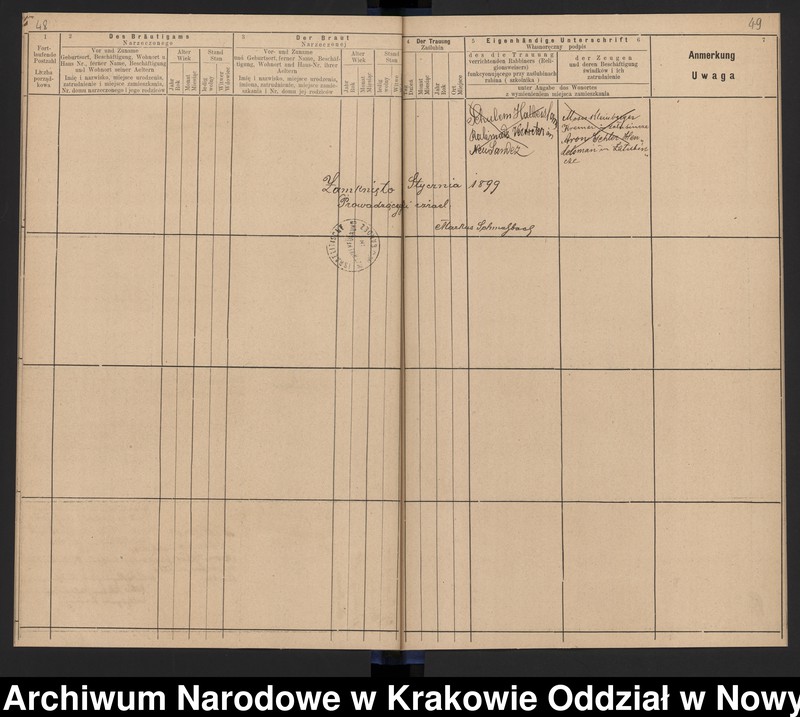 48
49
1
Fort-
laufende
Postzahl
Liczba
porząd-
kowa
2
Des Bräutigams
Narzeczonego
Vor und Zuname
Geburtsort, Beschäftigung, Wohnort u
Haus Nr., ferner Name, Beschäftigung
und Wohnort seiner Aeltern
Imię i nazwisko, miejsce urodzenia,
zatrudnienie i miejsce zamieszkania,
Nr. domu narzeczonego i jego rodziców
Alter
Wiek
Jahr
Rok
Monat
Miesiąc
Stand
Stan
ledig
wolny
Witwer
Wdowiec
3
Der Braut
Narzeczonej
Vor- und Zuname
und Geburtsort, ferner Name, Beschäf-
tigung, Wohnort und Haus-Nr. ihrer
Aeltern
Imię i nazwisko, miejsce urodzenia,
imiona, zatrudnienie, miejsce zamie-
szkania i Nr. domu jej rodziców
Alter
Wiek
Jahr
Rok
Monat
Miesiąc
Stand
Stan
ledig
wolny
4
Der Trauung
Zaślubin
Monat
Miesiąc
Jahr
Rok
Ort
Miejsce
5
Eigenhändige Unterschrift
6
Własnoręczny podpis
des die Trauung
verrichtenden Rabbiners (Reli-
gionsweisers)
funkcyonującego przy zaślubinach
rabina ( szkolnika )
der Zeugen
und deren Beschäftigung
świadków i ich
zatrudnienie
unter Angabe des Wonortes
z wymienieniem miejsca zamieszkania
7
Anmerkung
Uwaga
Neu Sandez
Zamknięto Stycznia 1899
Prowadzący izrael
Markus Schmalbach
Archiwum Narodowe w Krakowie Oddział w Nowy